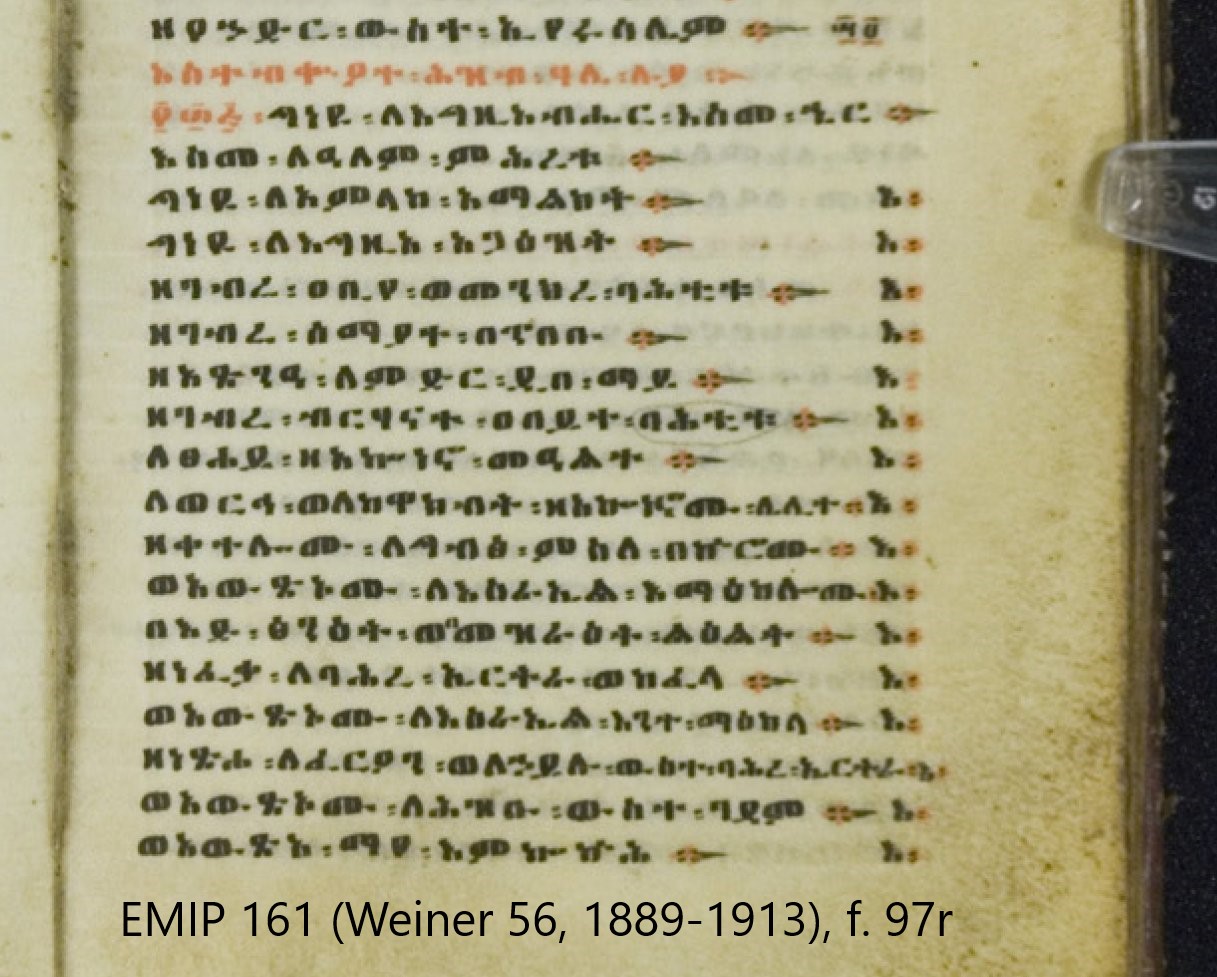 ዘየኃድር ፡ ውስተ ፡ ኢየሩሳሌም ፨ ፵፬
እስተብቍዖት ፡ ሕዝብ ፡ ሃሌ ፡ ሉያ ፨
፻፴፭ ፡ ግነዩ ፡ ለእግዚአብሔር ፡ እስመ ፡ ኄር ፨
እስመ ፡ ለዓለም ፡ ምሕረቱ ፨
ግነዩ ፡ ለአምላከ ፡ አማልክት ፨ እ፡
ግነዩ ፡ ለእግዚአ ፡ አጋዕዝት ፨ እ፡
ዘገብረ ፡ ዐቢየ ፡ ወመንክረ ፡ ባሕቲቱ ፨ እ፡
ዘገብረ ፡ ሰማያተ ፡ በጥበቡ ፨ እ፡
ዘአጽንዓ ፡ ለምድር ፡ ዲበ ፡ ማይ ፨ እ፡
ዘገብረ ፡ ብርሃናተ ፡ ዐበይተ ፡ ባሕቲቱ ፨ እ፡
ለፀሐይ ፡ ዘአኰነኖ ፡ መዓልተ ፨ እ፡
ለወርኅ ፡ ወለከዋክብት ፡ ዘአኰነኖሙ ፡ ሌሊተ ፨ እ፡
ዘቀተሎሙ ፡ ለግብፅ ፡ ምስለ ፡ በኵሮሙ ፨ እ፡
ወአውጽኦሙ ፡ ለእስራኤል ፡ እማዕከሎሙ ፨ እ፡
በእድ ፡ ጽንዕት ፡ ወመዝራዕት ፡ ልዕልት ፨ እ፡
ዘነፈቃ ፡ ለባሕረ ፡ ኤርትራ ፡ ወከፈላ ፨ እ፡
ወአውጽኦሙ ፡ ለእስራኤል ፡ እንተ ፡ ማዕከላ ፨ እ፡
ዘነጽሖ ፡ ለፈርዖን ፡ ወለኃይሉ ፡ ውስተ ፡ ባሕረ ፡ ኤርትራ ፡ እ፡
ወአውጽኦሙ ፡ ለሕዝቡ ፡ ውስተ ፡ ገዳም ፨ እ፡
ወአውጽአ ፡ ማየ ፡ እምኰኵሕ ፨ እ፡
EMIP 161 (Weiner 56, 1889-1913), f. 97r